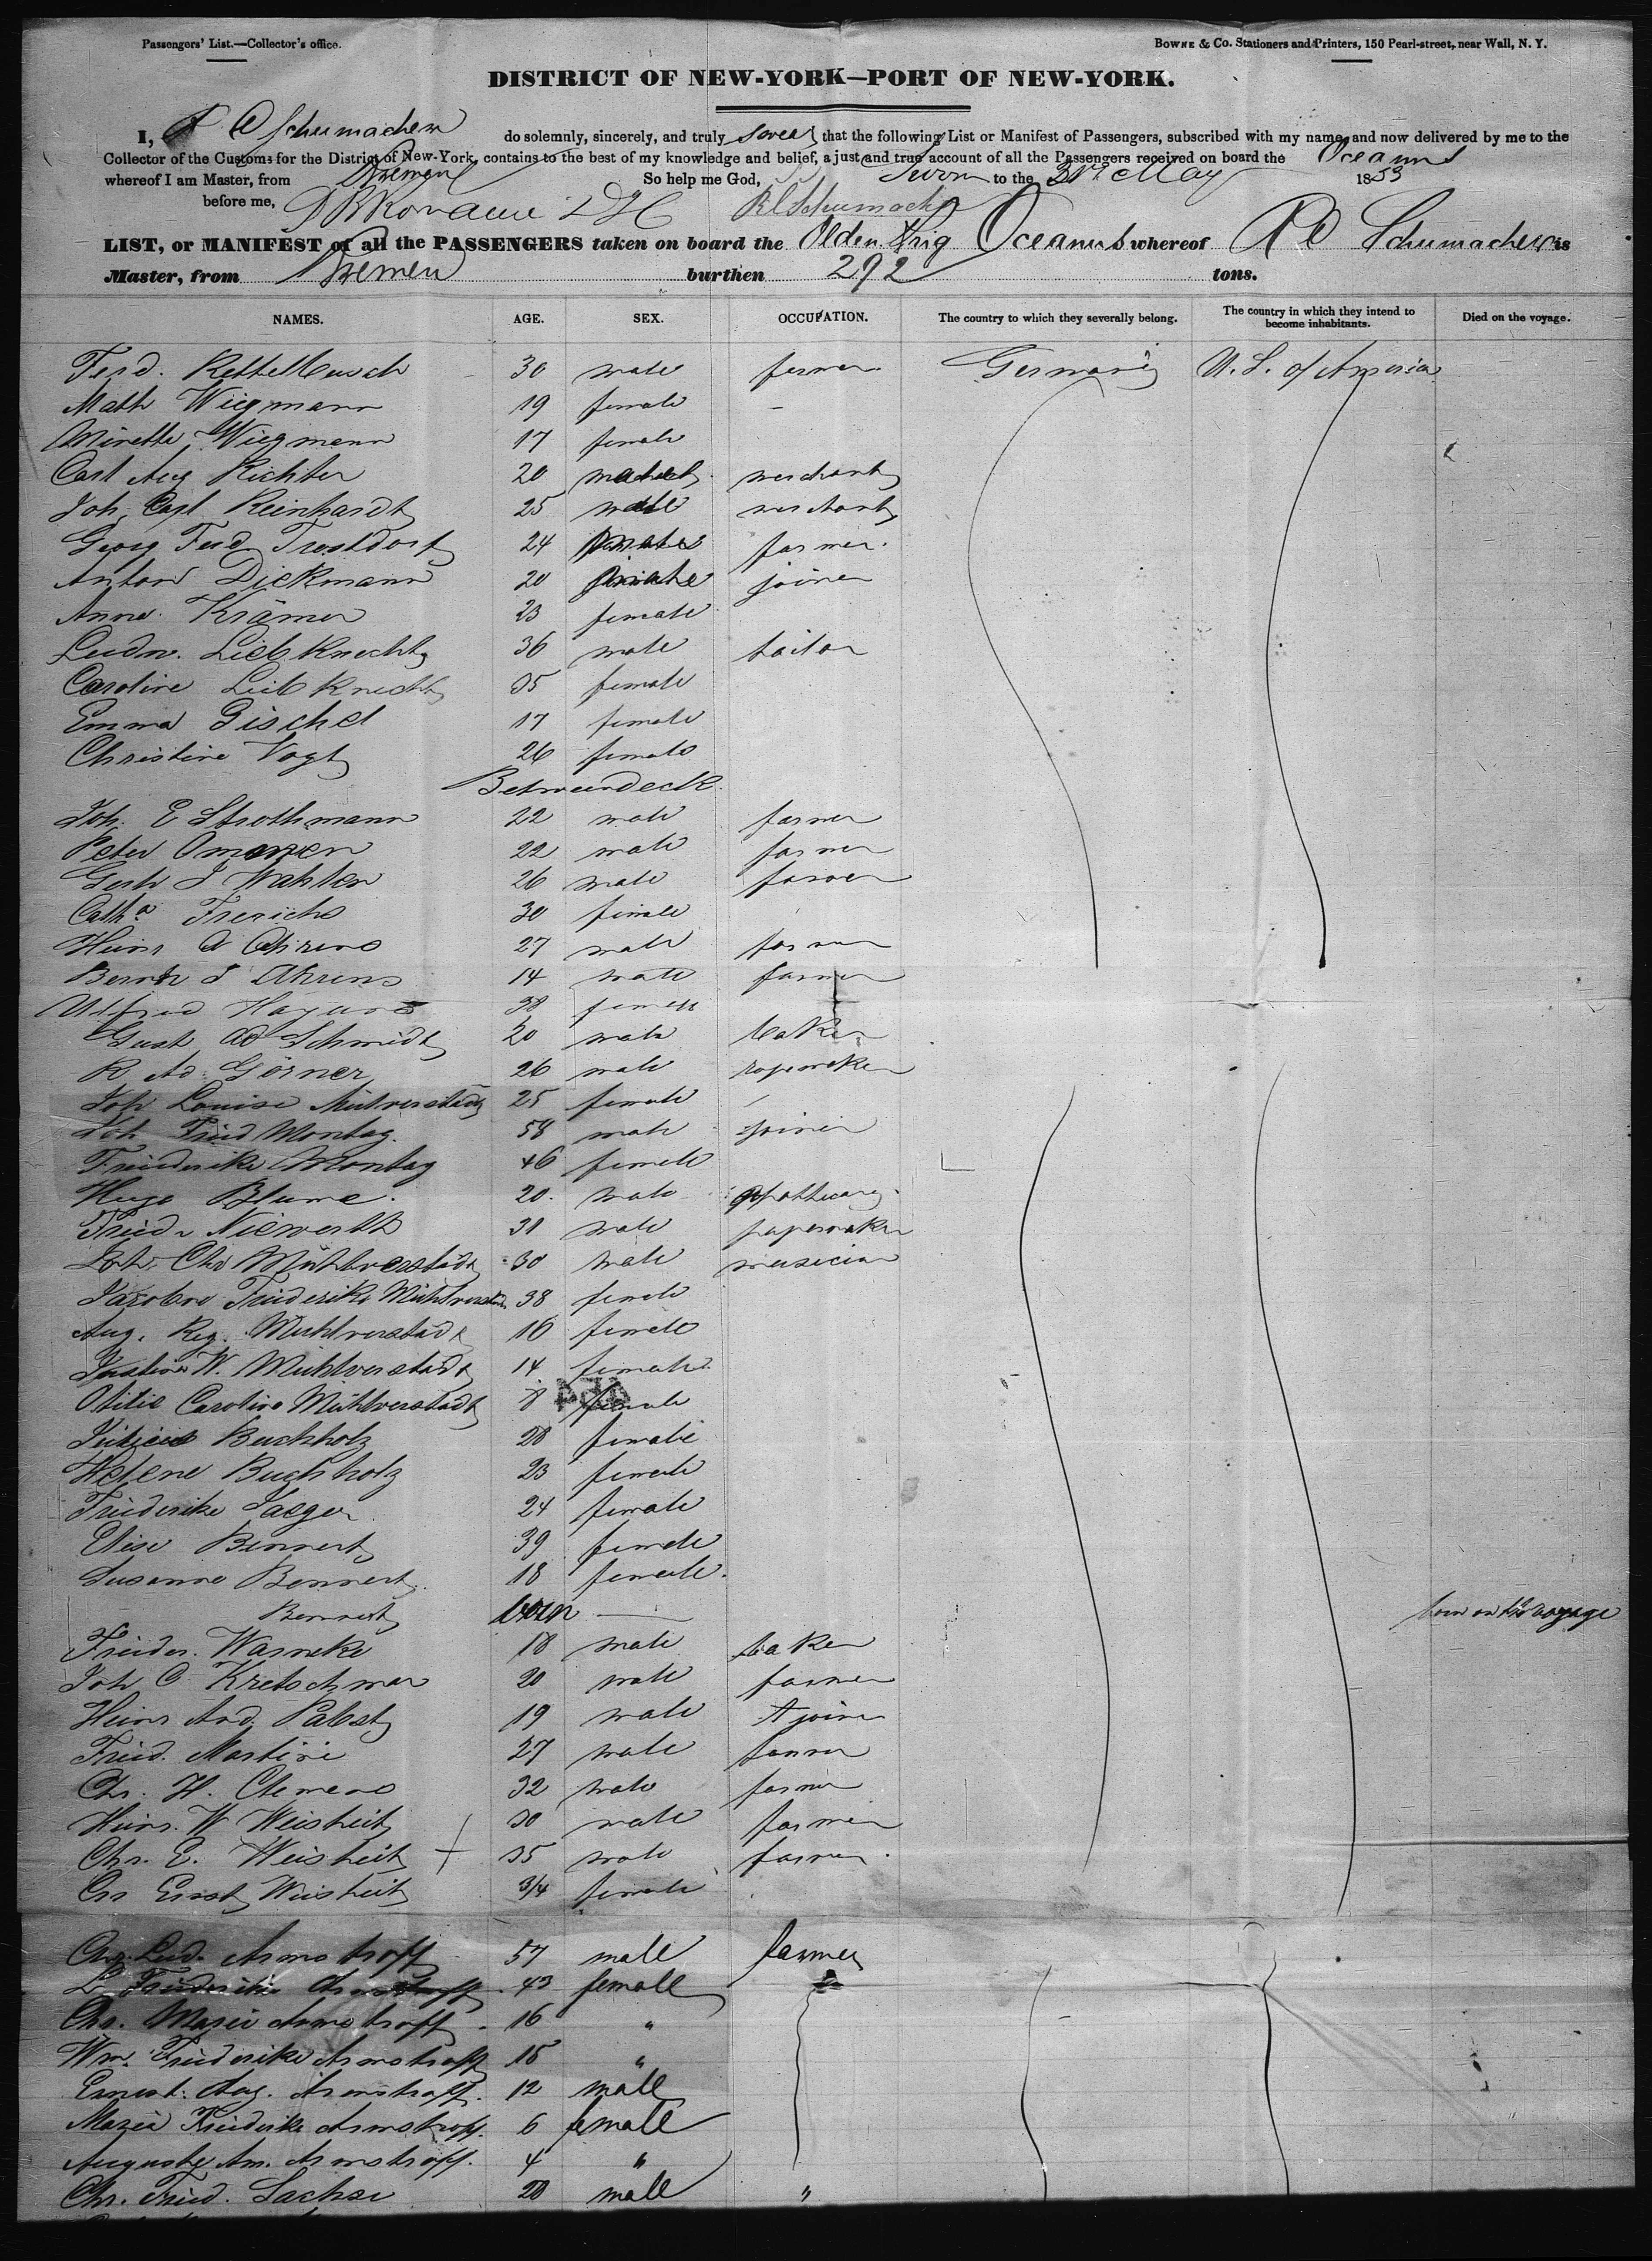 Passengers' List.—Collector's office.
BOWNE & Co. Stationers and Printers, 150 Pearl-street, near Wall, N. Y.
DISTRICT OF NEW-YORK—PORT OF NEW-YORK.
I, Schumacher do solemnly, sincerely, and truly swear that the following List or Manifest of Passengers, subscribed with my name, and now delivered by me to the
Collector of the Customs for the District of New-York, contains to the best of my knowledge and belief, a just and true account of all the Passengers received on board the Oceanus
whereof I am Master, from Bremen So help me God, Sworn to the 31st May 1853
before me, Schumacher
LIST, or MANIFEST of all the PASSENGERS taken on board the Olden. Brig Oceanus whereof Schumacher is
Master, from Bremen burthen 292 tons.
NAMES. AGE. SEX. OCCUPATION. The country to which they severally belong. The country in which they intend to become inhabitants. Died on the voyage.
Ferd. Kettelbusch 30 male farmer Germany U. S. of America
Math Wiegmann 19 female -
Minette Wiegmann 17 female
Carl Aug Richter 20 male merchant
Joh. Carl Reinhardt 25 male merchant
Georg Ferd Trostdorf 24 male farmer.
Anton Diekmann 20 male joiner
Anna Krämer 23 female
Ludw. Liebknecht 36 male tailor
Caroline Liebknecht 35 female
Emma Gischel 17 female
Christine Vogt 26 female
Betweendeck.
Joh. E Strothmann 22 male farmer
Peter Ommen 22 male farmer
Gerh J Wahlen 26 male farmer
Cath.a Frerichs 30 female
Heinr A Ahrens 27 male farmer
Bernh J Ahrens 14 male farmer
38
Gust Ad Schmidt 20 male baker
R. Ad Görner 26 male ropemaker
Joh Louise Mühverstädt 25 female
Joh Fried Montag. 58 male joiner
Friederike Montag 46 female
Hugo Blume. 20. male apothecary.
Friedr Niewerth 31 male papermaker
Joh. Chr Mühlverstädt 30 male musician
Jacobine Friederike Mühlverstädt 38 female
Aug. Reg. Mühlverstädt 16 female
Justine W. Mühlverstädt 14 female
Otilie Caroline Mühlverstädt 8 female
Buchholz 28 female
Helene Buchholz 23 female
Friederike Jaeger 24 female
Elise Bennert 39 female
Susanne Bennert. 18 female.
Bennert born — born on the voyage
Frieder. Warneke 18 male baker
Joh C Kretschmar 20 male farmer
Heinr And Pabst 19 male joiner
Fried. Martini 27 male farmer
Chr. H. Clemens 32 male farmer
Heinr. W Weisheit 30 male farmer
Chr. E. Weisheit + 35 male farmer.
Chr Ernst Weisheit 3/4 female
Chr. Lud. Armstroff 57 male farmer
L Friederike Armstroff 43 female
Chr. Marie Armstroff 16 "
Wm. Friederike Armstroff 15 "
Ernest. Aug. Armstroff. 12 male
Maria Friederike Armstroff. 6 female
Auguste Am. Armstroff. 4 "
Chr. Fried. Sachse 28 male "